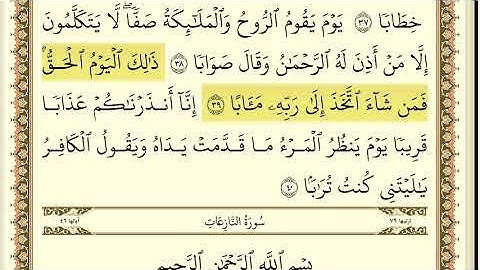 خِطَابًا ٣٧ يَوْمَ يَقُومُ ٱلرُّوحُ وَٱلْمَلَـٰٓئِكَةُ صَفًّا ۖ لَّا يَتَكَلَّمُونَ
إِلَّا مَنْ أَذِنَ لَهُ ٱلرَّحْمَـٰنُ وَقَالَ صَوَابًا ٣٨ ذَٰلِكَ ٱلْيَوْمُ ٱلْحَقُّ ۖ
فَمَن شَآءَ ٱتَّخَذَ إِلَىٰ رَبِّهِۦ مَـَٔابًا ٣٩ إِنَّآ أَنذَرْنَـٰكُمْ عَذَابًا
قَرِيبًا يَوْمَ يَنظُرُ ٱلْمَرْءُ مَا قَدَّمَتْ يَدَاهُ وَيَقُولُ ٱلْكَافِرُ
يَـٰلَيْتَنِى كُنتُ تُرَٰبًۢا ٤٠
ترتيبها ٧٩ سُورَةُ النَّازِعَاتِ آياتها ٤٦
بِسْمِ ٱللَّهِ ٱلرَّحْمَـٰنِ ٱلرَّحِيمِ